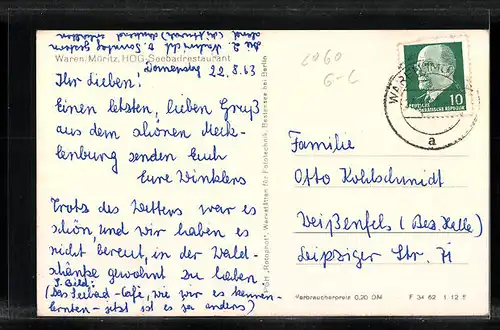 Waren/Müritz, HOG-Seebadrestaurant
Donnerstag 22.8.63
Ihr Lieben!
Einen letzten, lieben Gruß
aus dem schönen Meck-
lenburg senden Euch
Eure Winklers
Trotz des Wetters war es
schön, und wir haben es
nicht bereut, in der Wald-
schänke gewohnt zu haben
s. Bild:
(Das Seebad-Café, wie wir es kennen-
lernten - jetzt ist es ja anders)
2060
G-L
WAREN
DEUTSCHE
DEMOKRATISCHE REPUBLIK
10
a
Familie
Otto Kohlschmidt
Weißenfels (Bez. Halle)
Leipziger Str. 71
Verbraucherpreis 0,20 DM
F 34 62